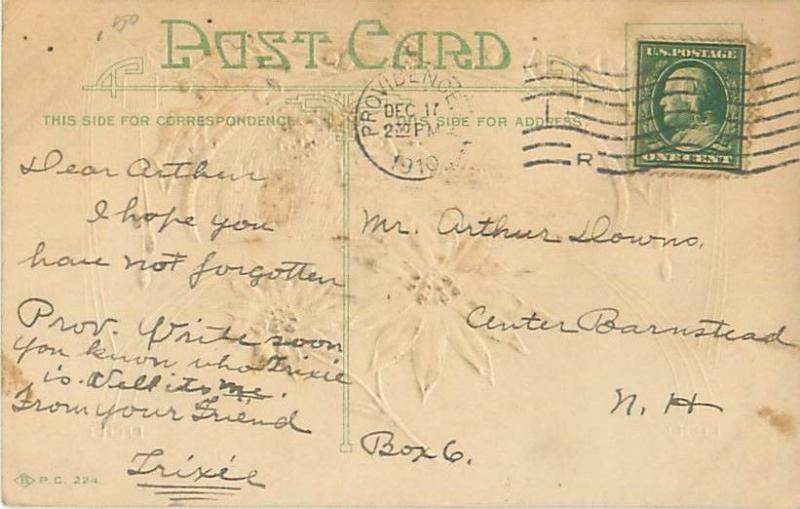 POST CARD
THIS SIDE FOR CORRESPONDENCE
THIS SIDE FOR ADDRESS
PROVIDENCE
DEC 17
2 30 PM
1910
R
U.S. POSTAGE
ONE CENT
Dear Arthur
I hope you
have not forgotten
Prov. Write soon
you know who Trixie
is. Well its me.
From your Friend
Trixie
Mr. Arthur Downs,
Center Barnstead
N. H
Box 6.
P.C. 224.